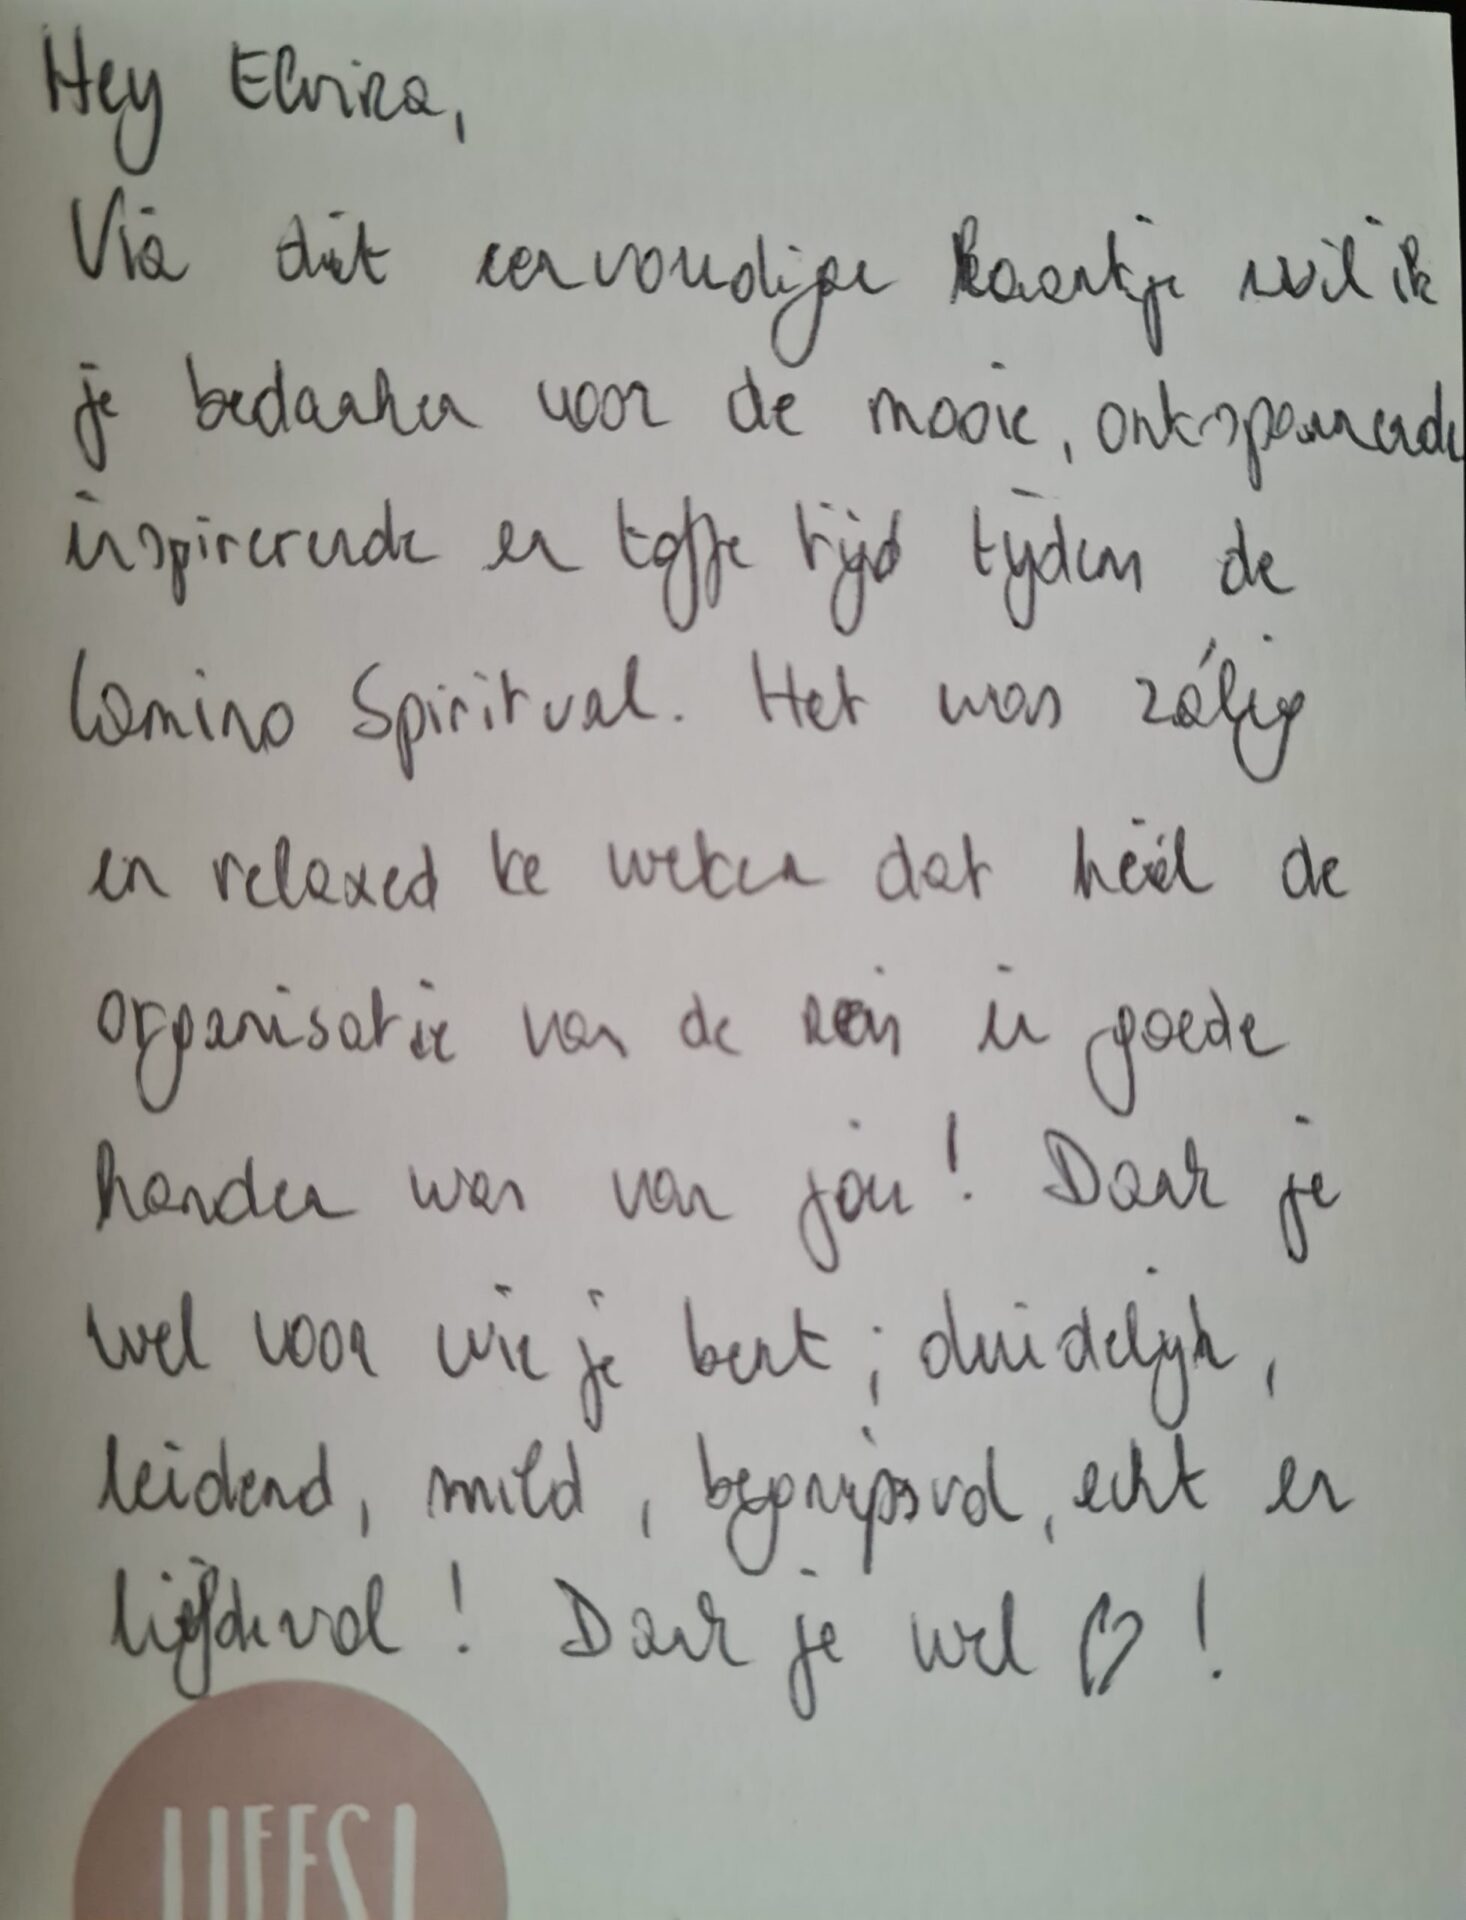 Hey Elvira,
Via dit eenvoudige kaartje wil ik
je bedanken voor de mooie, ontspannende
inspirerende en toffe tijd tijdens de
Camino Spiritual. Het was zálig
en relaxed te weten dat héél de
organisatie van de reis in goede
handen was van jou! Dank je
wel voor wie je bent; duidelijk,
leidend, mild, begripsvol, echt en
liefdevol! Dank je wel ♡!